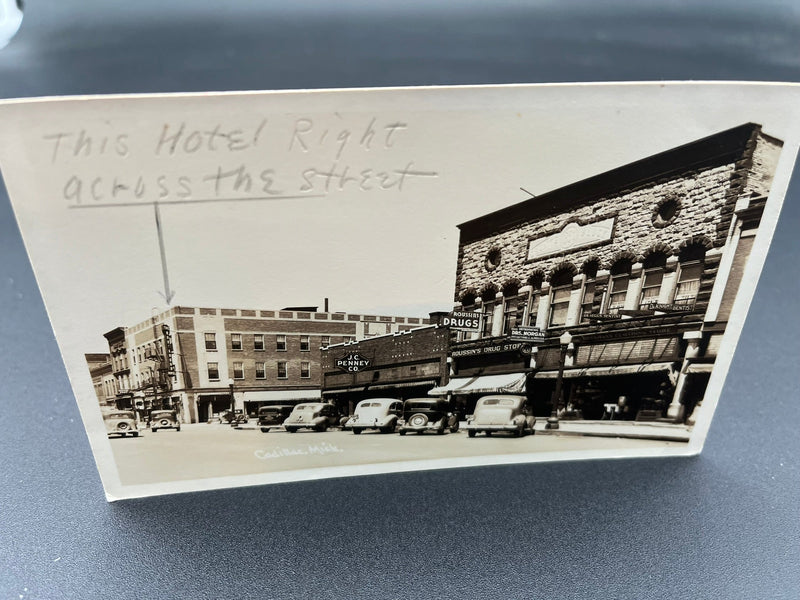 This Hotel Right
across the street
ROUSSIN'S
DRUGS
DRS. MORGAN
DR. KNIGHT DENTIST
J.C.
PENNEY
CO.
ROUSSIN'S DRUG STORE
Cadillac, Mich.